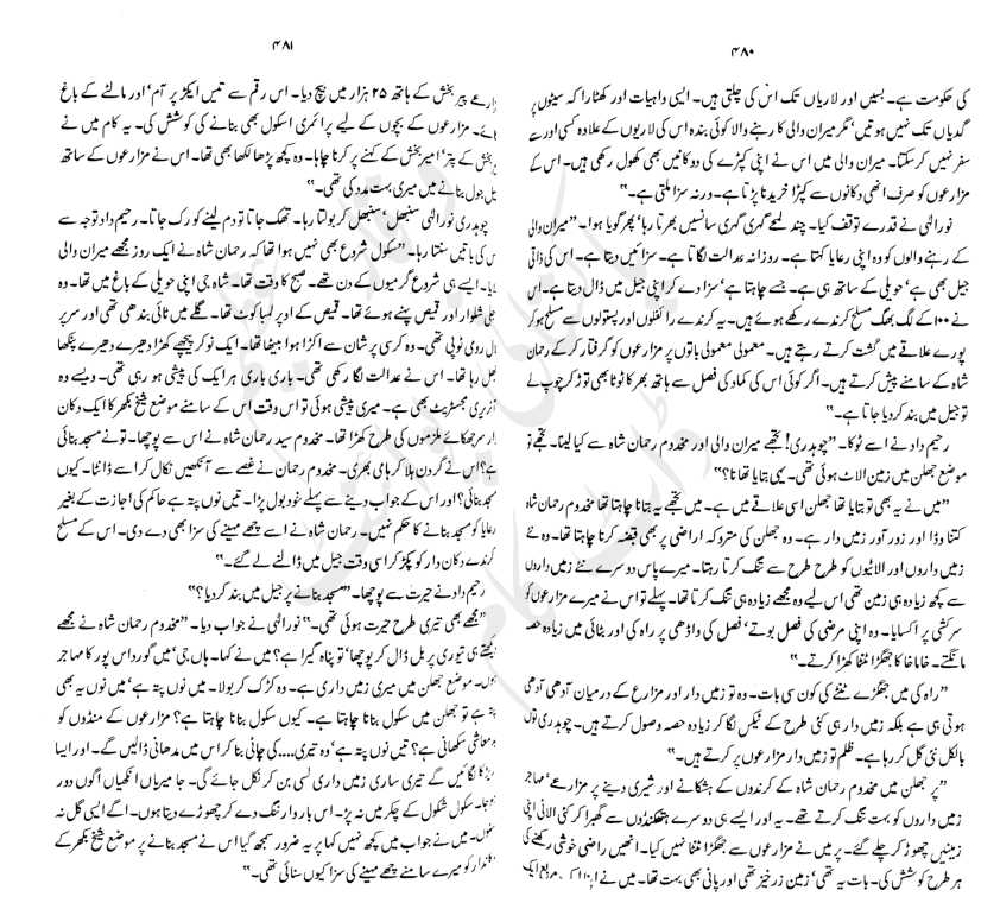 ۴۸۰
کی حکومت ہے۔ بسیں اور لاریاں تک اس کی چلتی ہیں۔ ایسی واہیات اور کھٹارا کہ سیٹوں پر
گدیاں تک نہیں ہوتیں' مگر میراں والی کا رہنے والا کوئی بندہ اس کی لاریوں کے علاوہ کسی اور سے
سفر نہیں کر سکتا۔ میراں والی میں اس نے اپنی کپڑے کی دوکانیں بھی کھول رکھی ہیں۔ اس کے
مزارعوں کو صرف انھی دکانوں سے کپڑا خریدنا پڑتا ہے۔ ورنہ سزا ملتی ہے۔"
نور الٰہی نے قدرے توقف کیا۔ چند لمحے گہری گہری سانسیں بھرتا رہا' پھر گویا ہوا۔ "میراں والی
کے رہنے والوں کو وہ اپنی رعایا کہتا ہے۔ روزانہ عدالت لگاتا ہے۔ سزائیں دیتا ہے۔ اس کی ذاتی
جیل بھی ہے' حویلی کے ساتھ ہی ہے۔ جسے چاہتا ہے' سزا دے کر اپنی جیل میں ڈال دیتا ہے۔ اس
نے ۱۰۰ کے لگ بھگ مسلح کرندے رکھے ہوئے ہیں۔ یہ کرندے رائفلوں اور پستولوں سے مسلح ہو کر
پورے علاقے میں گشت کرتے رہتے ہیں۔ معمولی معمولی باتوں پر مزارعوں کو گرفتار کر کے رحمان
شاہ کے سامنے پیش کرتے ہیں۔ اگر کوئی اس کی کماد کی فصل سے ہاتھ بھر کا ٹوٹا بھی توڑ کر چوپ لے
تو جیل میں بند کر دیا جاتا ہے۔"
رحیم داد نے اسے ٹوکا۔ "چوہدری! تجھے میراں والی اور مخدوم رحمان شاہ سے کیا لینا۔ تجھے تو
موضع جھلن میں زمین الاٹ ہوئی تھی۔ یہی بتایا تھا نا؟"
"میں نے یہ بھی تو بتایا تھا جھلن اسی علاقے میں ہے۔ میں تجھے یہ بتانا چاہتا تھا مخدوم رحمان شاہ
کتنا وڈا اور زور آور زمیں دار ہے۔ وہ جھلن کی متروکہ اراضی پر بھی قبضہ کرنا چاہتا تھا۔ وہ نئے
زمیں داروں اور الاٹیوں کو طرح طرح سے تنگ کرتا رہتا۔ میرے پاس دوسرے نئے زمیں داروں
سے کچھ زیادہ ہی زمین تھی اس لیے وہ مجھے زیادہ ہی تنگ کرتا تھا۔ پہلے تو اس نے میرے مزارعوں کو
سرکشی پر اکسایا۔ وہ اپنی مرضی کی فصل بوتے' فصل کی واڈھی پر راہ کی اور بٹائی میں زیادہ حصہ
مانگتے۔ خاماخا کا جھگڑا ٹنٹا کھڑا کرتے۔"
"راہ کی میں جھگڑے ٹنٹے کی کون سی بات۔ وہ تو زمیں دار اور مزارع کے درمیان آدھی آدھی
ہوتی ہی ہے بلکہ زمیں دار ہی کئی طرح کے ٹیکس لگا کر زیادہ حصہ وصول کرتے ہیں۔ چوہدری توں
بالکل نئی گل کر رہا ہے۔ ظلم تو زمیں دار مزارعوں پر کرتے ہیں۔"
"پر جھلن میں مخدوم رحمان شاہ کے کرندوں کے ہشکانے اور شیری دینے پر مزارعے' مہاجر
زمیں داروں کو بہت تنگ کرتے تھے۔ یہ اور ایسے ہی دوسرے ہتھکنڈوں سے گھبرا کر کئی الاٹی اپنی
زمینیں چھوڑ کر چلے گئے۔ پر میں نے مزارعوں سے جھگڑا ٹنٹا نہیں کیا۔ انھیں راضی خوشی رکھنے کی
ہر طرح کوشش کی۔ بات یہ تھی' زمین زرخیز تھی اور پانی بھی بہت تھا۔ میں نے ایک مربع ایک
۴۸۱
پیر بخش کے ہاتھ ۲۵ ہزار میں بیچ دیا۔ اس رقم سے تیس ایکڑ پر آم' اور مالٹے کے باغ
مزارعوں کے بچوں کے لیے پرائمری اسکول بھی بنانے کی کوشش کی۔ یہ کام میں نے
بخش کے پتر' امیر بخش کے کہنے پر کرنا چاہا۔ وہ کچھ پڑھا لکھا بھی تھا۔ اس نے مزارعوں کے ساتھ
میل جول بنانے میں میری بہت مدد کی تھی۔"
چوہدری نور الٰہی سنبھل' سنبھل کر بولتا رہا۔ تھک جاتا تو دم لینے کو رک جاتا۔ رحیم داد توجہ سے
کی باتیں سنتا رہا۔ "سکول شروع بھی نہیں ہوا تھا کہ رحمان شاہ نے ایک روز مجھے میراں والی
ایسے ہی شروع گرمیوں کے دن تھے۔ صبح کا وقت تھا۔ شاہ جی اپنی حویلی کے باغ میں تھا۔ وہ
شلوار اور قمیض پہنے ہوئے تھا۔ قمیض کے اوپر لمبا کوٹ تھا۔ گلے میں ٹائی بندھی تھی اور سر پر
رومی ٹوپی تھی۔ وہ کرسی پر شان سے اکڑا ہوا بیٹھا تھا۔ ایک نوکر پیچھے کھڑا دھیرے دھیرے پنکھا
جھل رہا تھا۔ اس نے عدالت لگا رکھی تھی۔ باری باری ہر ایک کی پیشی ہو رہی تھی۔ ویسے وہ
آنریری مجسٹریٹ بھی ہے۔ میری پیشی ہوئی تو اس وقت اس کے سامنے موضع شیخ بکھر کا ایک دکان
دار سر جھکائے ملزموں کی طرح کھڑا تھا۔ مخدوم سید رحمان شاہ نے اس سے پوچھا۔ تو نے مسجد بنائی
ہے؟ اس نے گردن ہلا کر ہامی بھری۔ مخدوم رحمان نے غصے سے آنکھیں نکال کر اسے ڈانٹا۔ کیوں
مسجد بنائی؟ اور اس کے جواب دینے سے پہلے خود بول پڑا۔ تیں نوں پتہ ہے حاکم کی اجازت کے بغیر
رعایا کو مسجد بنانے کا حکم نہیں۔ رحمان شاہ نے اسے چھے مہینے کی سزا بھی دے دی۔ اس کے مسلح
کرندے دکان دار کو پکڑ کر اسی وقت جیل میں ڈالنے لے گئے۔"
رحیم داد نے حیرت سے پوچھا۔ "مسجد بنانے پر جیل میں بند کر دیا؟"
"مجھے بھی تیری طرح حیرت ہوئی تھی۔" نور الٰہی نے جواب دیا۔ "مخدوم رحمان شاہ نے مجھے
دیکھتے ہی تیوری پر بل ڈال کر پوچھا' تو پناہ گیر ہے؟ میں نے کہا۔ ہاں جی' میں گورداس پور کا مہاجر
ہوں۔ موضع جھلن میں میری زمیں داری ہے۔ وہ کڑک کر بولا۔ میں نوں پتہ ہے' میں نوں یہ بھی
پتہ ہے تو جھلن میں سکول بنانا چاہتا ہے۔ کیوں سکول بنانا چاہتا ہے؟ مزارعوں کے منڈوں کو
بدمعاشی سکھانی ہے؟ تیں نوں پتہ ہے' وہ تیری.... کی چاٹی بنا کر اس میں مدھانی ڈالیں گے۔ اور ایسا
رگڑا لگائیں گے تیری ساری زمیں داری لسی بن کر نکل جائے گی۔ جا میریاں انکھیاں اگوں دور
ہو جا۔ سکول شکول کے چکر میں نہ پڑ۔ اس بار وارننگ دے کر چھوڑے دیتا ہوں۔ اگے ایسی گل نہ
سنوں۔ میں نے جواب میں کچھ نہیں کہا پر یہ ضرور سمجھ گیا اس نے مسجد بنانے پر موضع شیخ بکھر کے
دکندار کو میرے سامنے چھے مہینے کی سزا کیوں سنائی تھی۔"